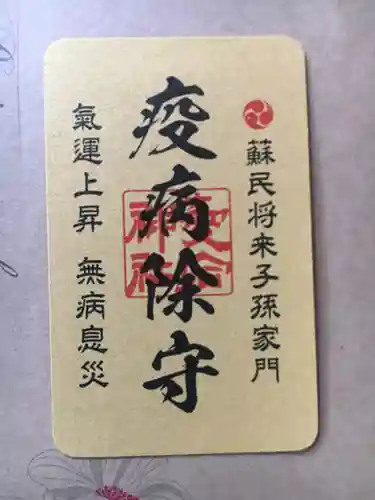 蘇民将来子孫家門
疫病除守
氣運上昇 無病息災